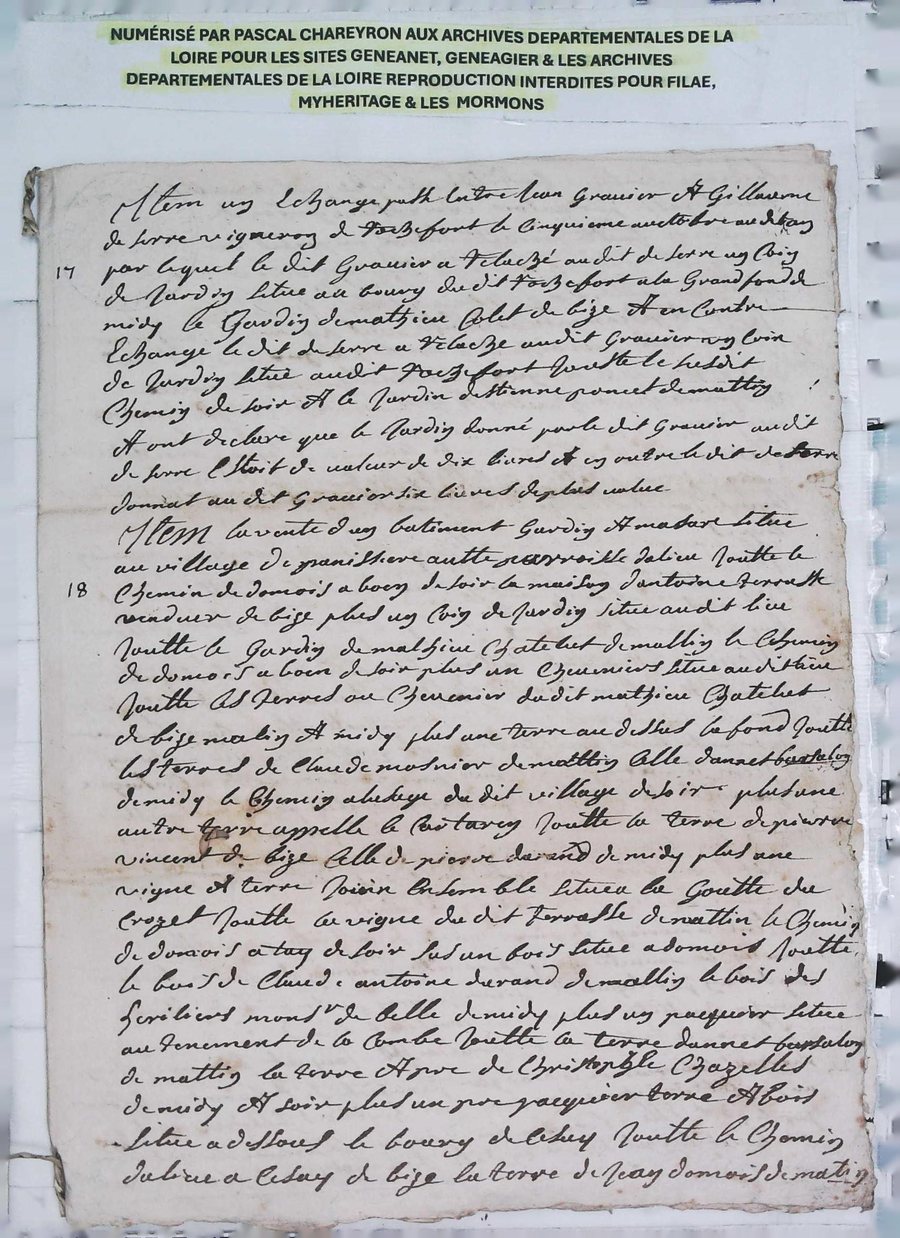 NUMÉRISÉ PAR PASCAL CHAREYRON AUX ARCHIVES DEPARTEMENTALES DE LA
LOIRE POUR LES SITES GENEANET, GENEAGIER & LES ARCHIVES
DEPARTEMENTALES DE LA LOIRE REPRODUCTION INTERDITES POUR FILAE,
MYHERITAGE & LES MORMONS
Item un Echange passé Entre Jean Gravier Et Gillaume
de serre vigneron de Rochefort le Cinquieme auctobre audit an
17 par lequel le dit Gravier a relaché audit de serre un Coin
de Jardin situe au bourg dudit Rochefort a la Grand fond de
midy le Jardin de mathieu Colet de bize Et en Contre
Echange le dit de serre a relaché audit Gravier un Coin
de Jardin situé audit Rochefort Jouste le susdit
Chemin de soir Et le Jardin destienne poncet de mattin
Et ont declare que le Jardin donné par le dit Gravier audit
de serre Estoit de valeur de dix livres Et en outre le dit de serre
donnat au dit Gravier six livres de plus value
Item la vente d'un batiment Jardin Et masure situe
au village de panissiere autte parroisse dalieu Joutte le
18 Chemin de domois a boen de soir la maison dantoine terrasse
vendeur de bize plus un Coin de Jardin situe audit lieu
Joutte le Jardin de mathieu Chatelut de mattin le Chemin
de domois a boen de soir plus un Cheneviers situe audit lieu
Joutte les terres ou Chenevier dudit mathieu Chatelut
de bize matin Et midy plus une terre au dessus la fond Joutte
les terres de Claude mosnier de mattin Celle dannet barsalon
de midy le Chemin a lusage du dit village de soir plus une
autre terre appelle le Joutte la terre de pierre
vincent de bize Celle de pierre durand de midy plus une
vigne Et terre Joien Ensemble situea la Goutte du
Crozet Joutte la vigne du dit terrasse de mattin le Chemin
de domois de soir sus un bois situe a domois Joutte
le bois de Claude antoine durand de mattin le bois des
monsr de Celle de midy plus un pacquier situe
au tenement de la Combe Joutte la terre dannet barsalon
de mattin la terre Et pre de Christophle Chazelles
de midy Et soir plus un pre pacquier terre Et bois
situe a dessous le bourg de Lesay Joutte le Chemin
dalieu a Lesay de bize la terre de Jean domois de matin